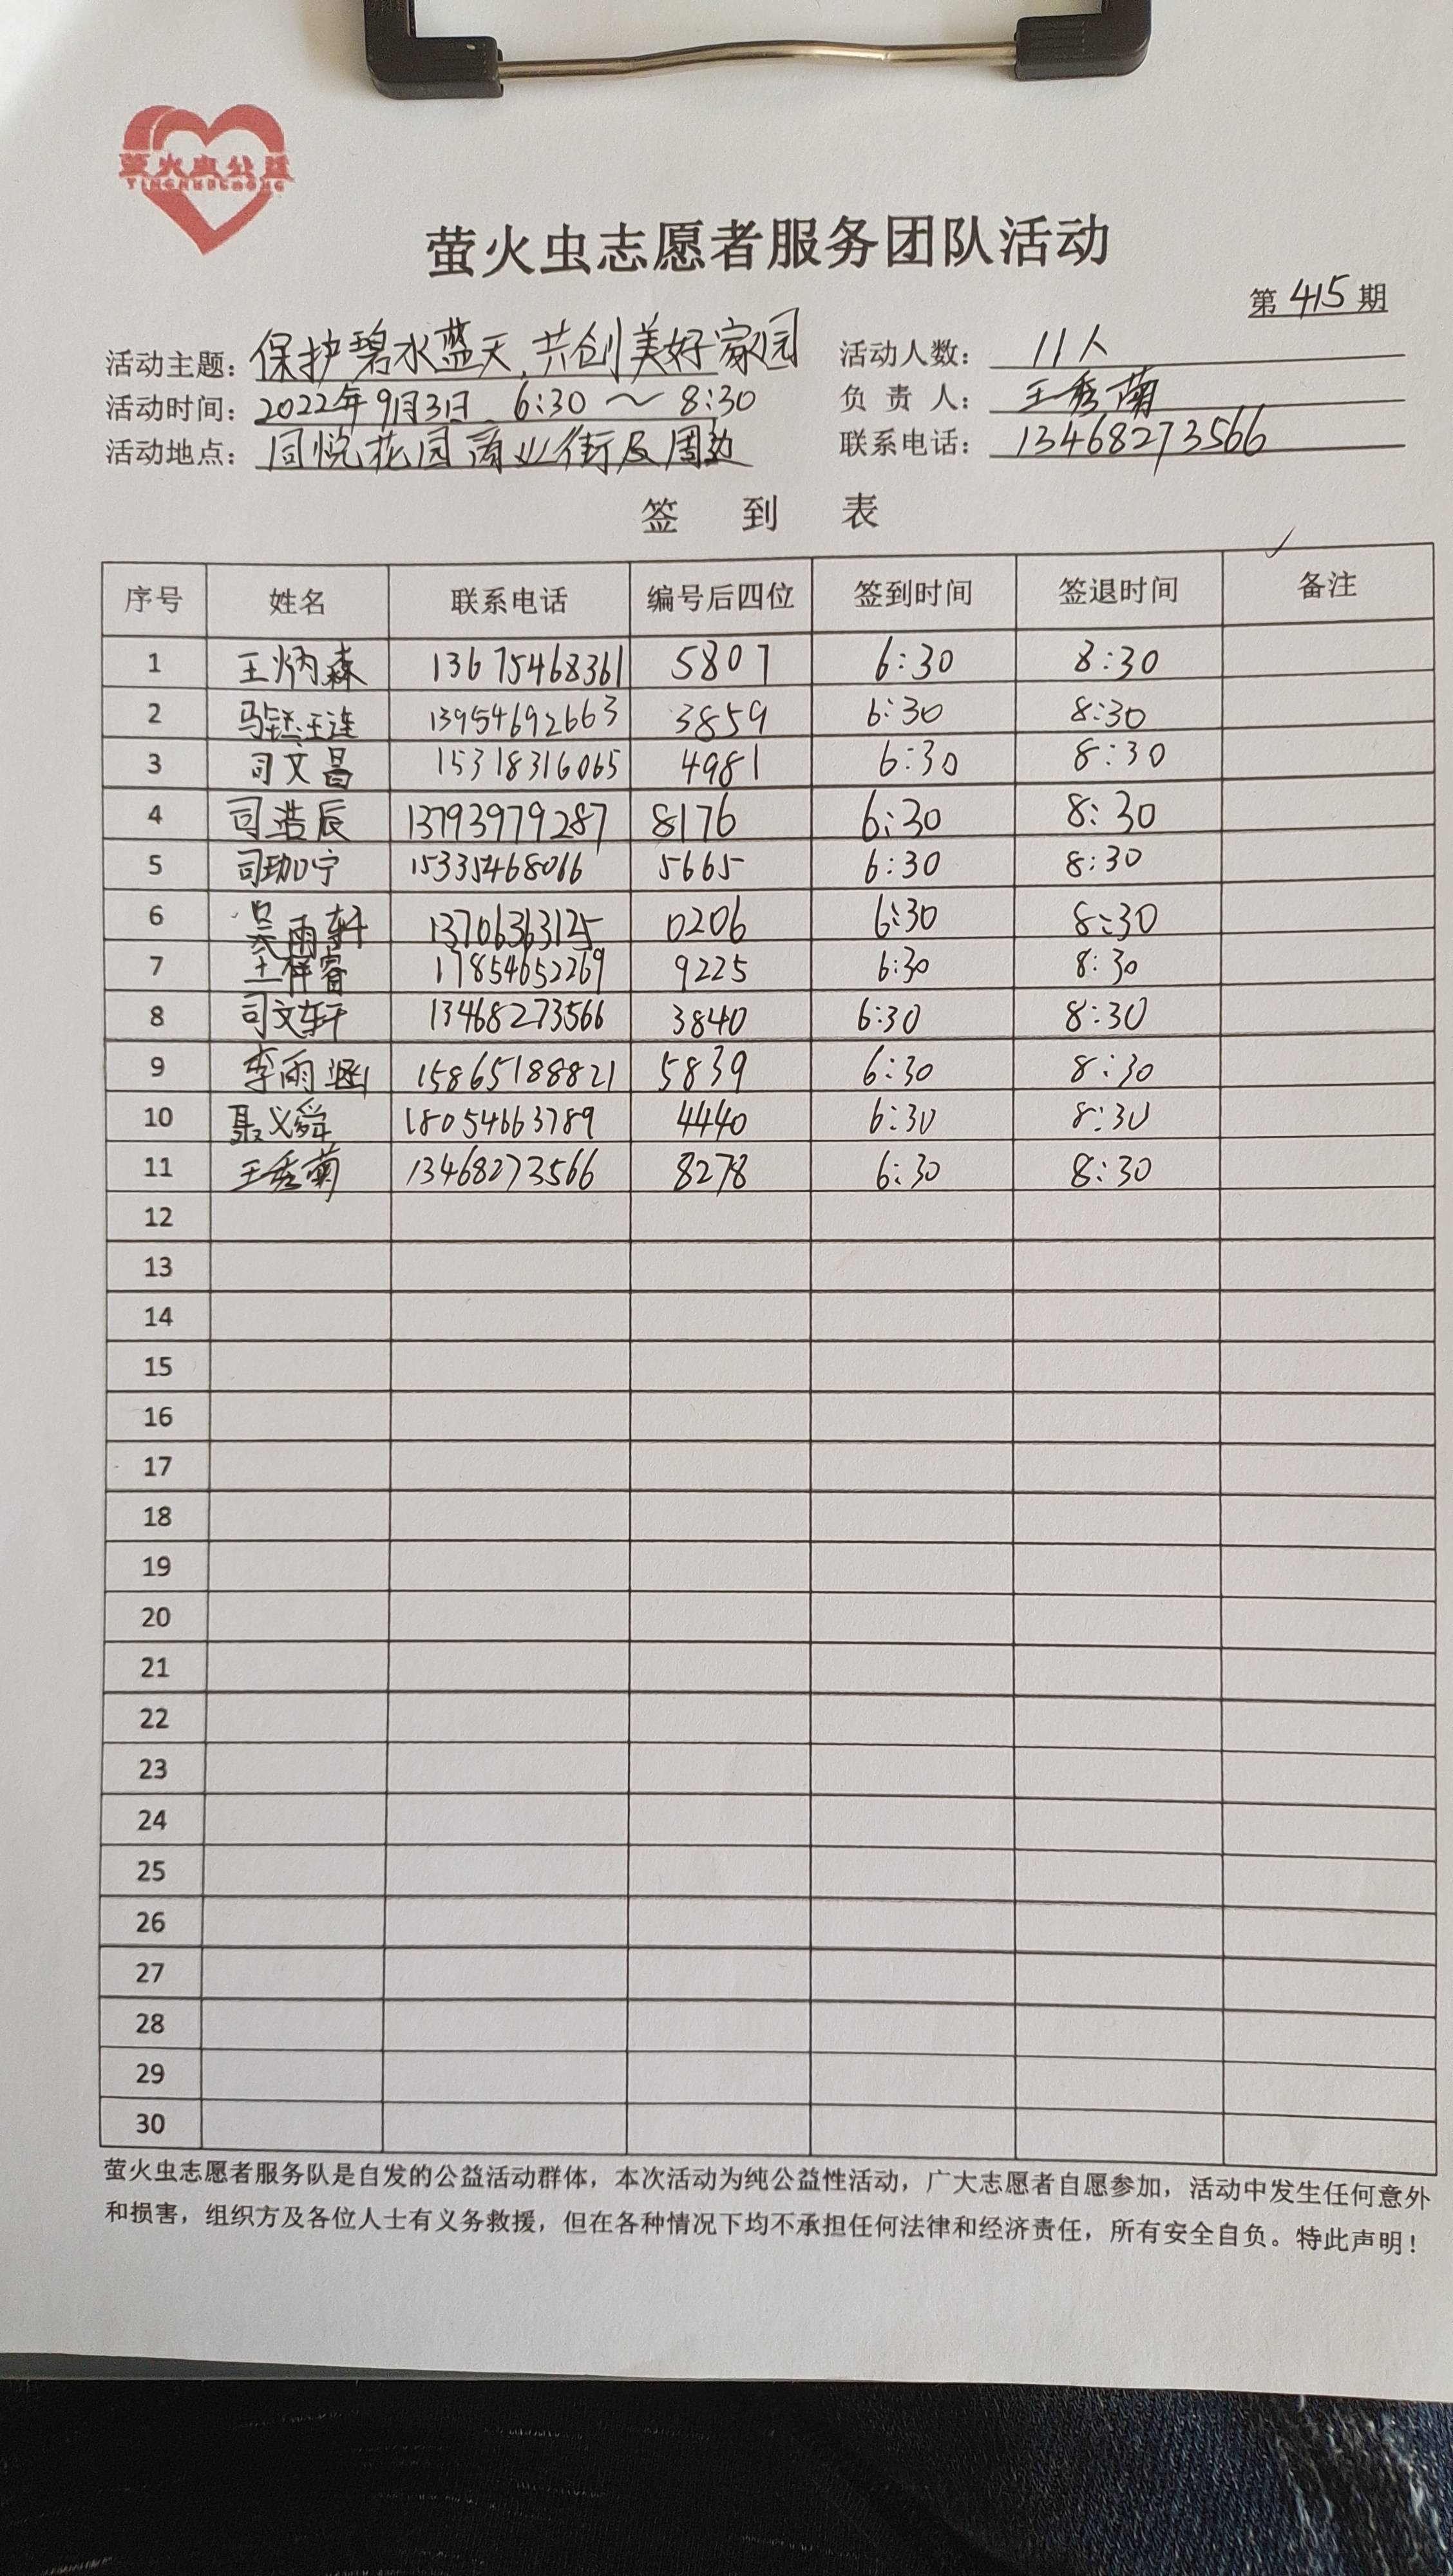 萤火虫公益
YINGHUOCHONG
萤火虫志愿者服务团队活动
第415期
活动主题：保护碧水蓝天，共创美好家园 活动人数：11人
活动时间：2022年9月3日 6:30～8:30 负责人：王秀菊
活动地点：同悦花园商业街及周边 联系电话：13468273566
签到表
序号 姓名 联系电话 编号后四位 签到时间 签退时间 备注
1 王炳森 13675468361 5807 6:30 8:30
2 马 13954692663 3859 6:30 8:30
3 司文昌 15318316065 4981 6:30 8:30
4 司浩辰 13793979287 8176 6:30 8:30
5 司珈宁 15335468066 5665 6:30 8:30
6 吴雨轩 13706363125 0206 6:30 8:30
7 王梓睿 17854652269 9225 6:30 8:30
8 司文轩 13468273566 3840 6:30 8:30
9 李雨涵 15865188821 5839 6:30 8:30
10 聂义舜 18054663789 4440 6:30 8:30
11 王秀菊 13468273566 8278 6:30 8:30
12
13
14
15
16
17
18
19
20
21
22
23
24
25
26
27
28
29
30
萤火虫志愿者服务队是自发的公益活动群体，本次活动为纯公益性活动，广大志愿者自愿参加，活动中发生任何意外
和损害，组织方及各位人士有义务救援，但在各种情况下均不承担任何法律和经济责任，所有安全自负。特此声明！